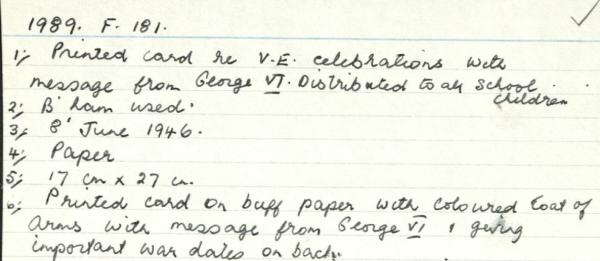 1989. F. 181.
1; Printed card re V.E. celebrations with
message from George VI. Distributed to all School
children
2; B'ham used.
3; 8' June 1946.
4; Paper
5; 17 cm x 27 cm.
6; Printed card on buff paper with coloured Coat of
Arms with message from George VI & giving
important war dates on back.